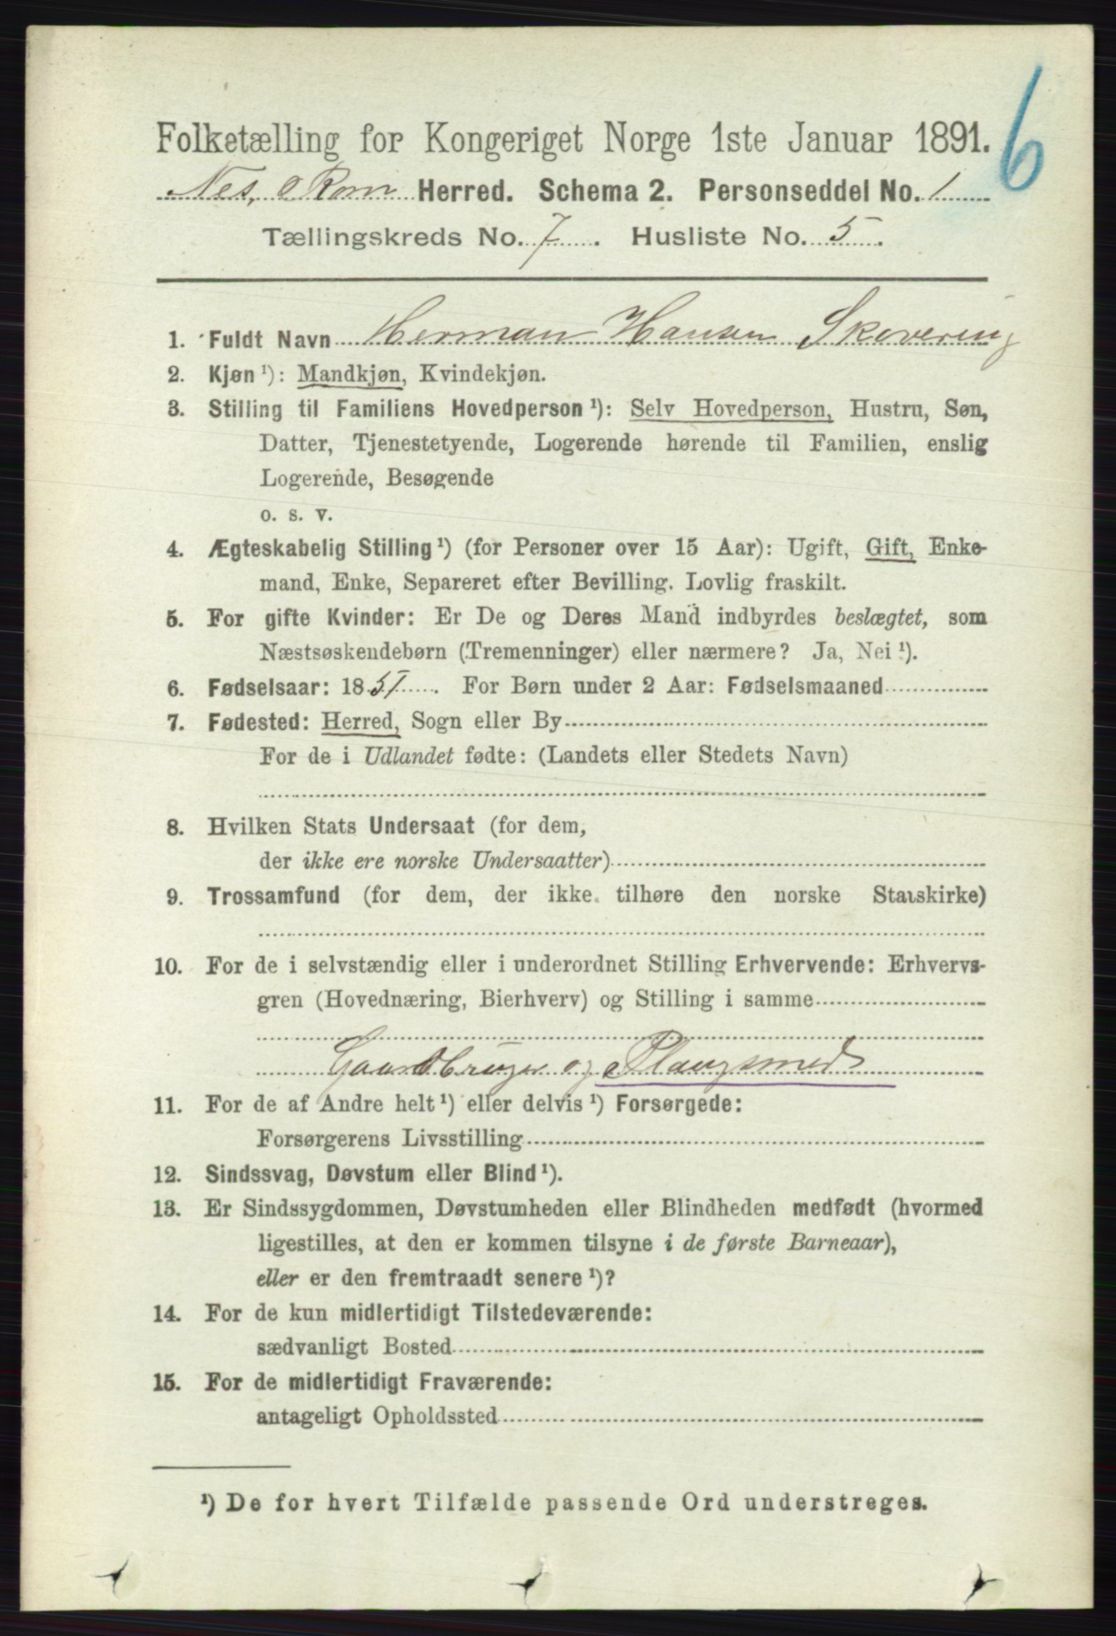 6
Folketælling for Kongeriget Norge 1ste Januar 1891.
Nes, o Rom Herred. Schema 2. Personseddel No. 1
Tællingskreds No. 7. Husliste No. 5.
1. Fuldt Navn Herman Hansen Skovering
2. Kjøn ¹): Mandkjøn, Kvindekjøn.
3. Stilling til Familiens Hovedperson ¹): Selv Hovedperson, Hustru, Søn,
Datter, Tjenestetyende, Logerende hørende til Familien, enslig
Logerende, Besøgende
o. s. v.
4. Ægteskabelig Stilling ¹) (for Personer over 15 Aar): Ugift, Gift, Enke-
mand, Enke, Separeret efter Bevilling. Lovlig fraskilt.
5. For gifte Kvinder: Er De og Deres Mand indbyrdes beslægtet, som
Næstsøskendebørn (Tremenninger) eller nærmere? Ja, Nei ¹).
6. Fødselsaar: 1851. For Børn under 2 Aar: Fødselsmaaned
7. Fødested: Herred, Sogn eller By
For de i Udlandet fødte: (Landets eller Stedets Navn)
8. Hvilken Stats Undersaat (for dem,
der ikke ere norske Undersaatter)
9. Trossamfund (for dem, der ikke tilhøre den norske Statskirke)
10. For de i selvstændig eller i underordnet Stilling Erhvervende: Erhvervs-
gren (Hovednæring, Bierhverv) og Stilling i samme
Gaardbruger og Plougsmed
11. For de af Andre helt ¹) eller delvis ¹) Forsørgede:
Forsørgerens Livsstilling
12. Sindssvag, Døvstum eller Blind ¹).
13. Er Sindssygdommen, Døvstumheden eller Blindheden medfødt (hvormed
ligestilles, at den er kommen tilsyne i de første Barneaar),
eller er den fremtraadt senere ¹)?
14. For de kun midlertidigt Tilstedeværende:
sædvanligt Bosted
15. For de midlertidigt Fraværende:
antageligt Opholdssted
¹) De for hvert Tilfælde passende Ord understreges.